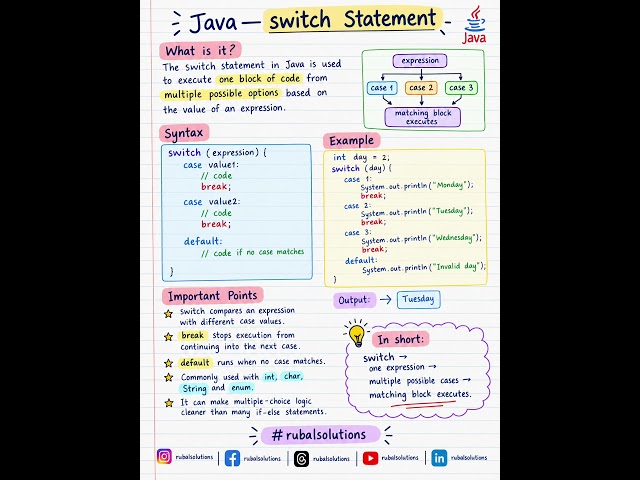 Java — switch Statement
Java
What is it?
The switch statement in Java is used
to execute one block of code from
multiple possible options based on
the value of an expression.
expression
case 1 case 2 case 3
matching block
executes
Syntax
switch (expression) {
case value1:
// code
break;
case value2:
// code
break;
default:
// code if no case matches
}
Example
int day = 2;
switch (day) {
case 1:
System.out.println("Monday");
break;
case 2:
System.out.println("Tuesday");
break;
case 3:
System.out.println("Wednesday");
break;
default:
System.out.println("Invalid day");
}
Output: → Tuesday
Important Points
switch compares an expression
with different case values.
break stops execution from
continuing into the next case.
default runs when no case matches.
Commonly used with int, char,
String and enum.
It can make multiple-choice logic
cleaner than many if-else statements.
In short:
switch →
one expression →
multiple possible cases →
matching block executes.
#rubalsolutions
rubalsolutions rubalsolutions rubalsolutions rubalsolutions rubalsolutions